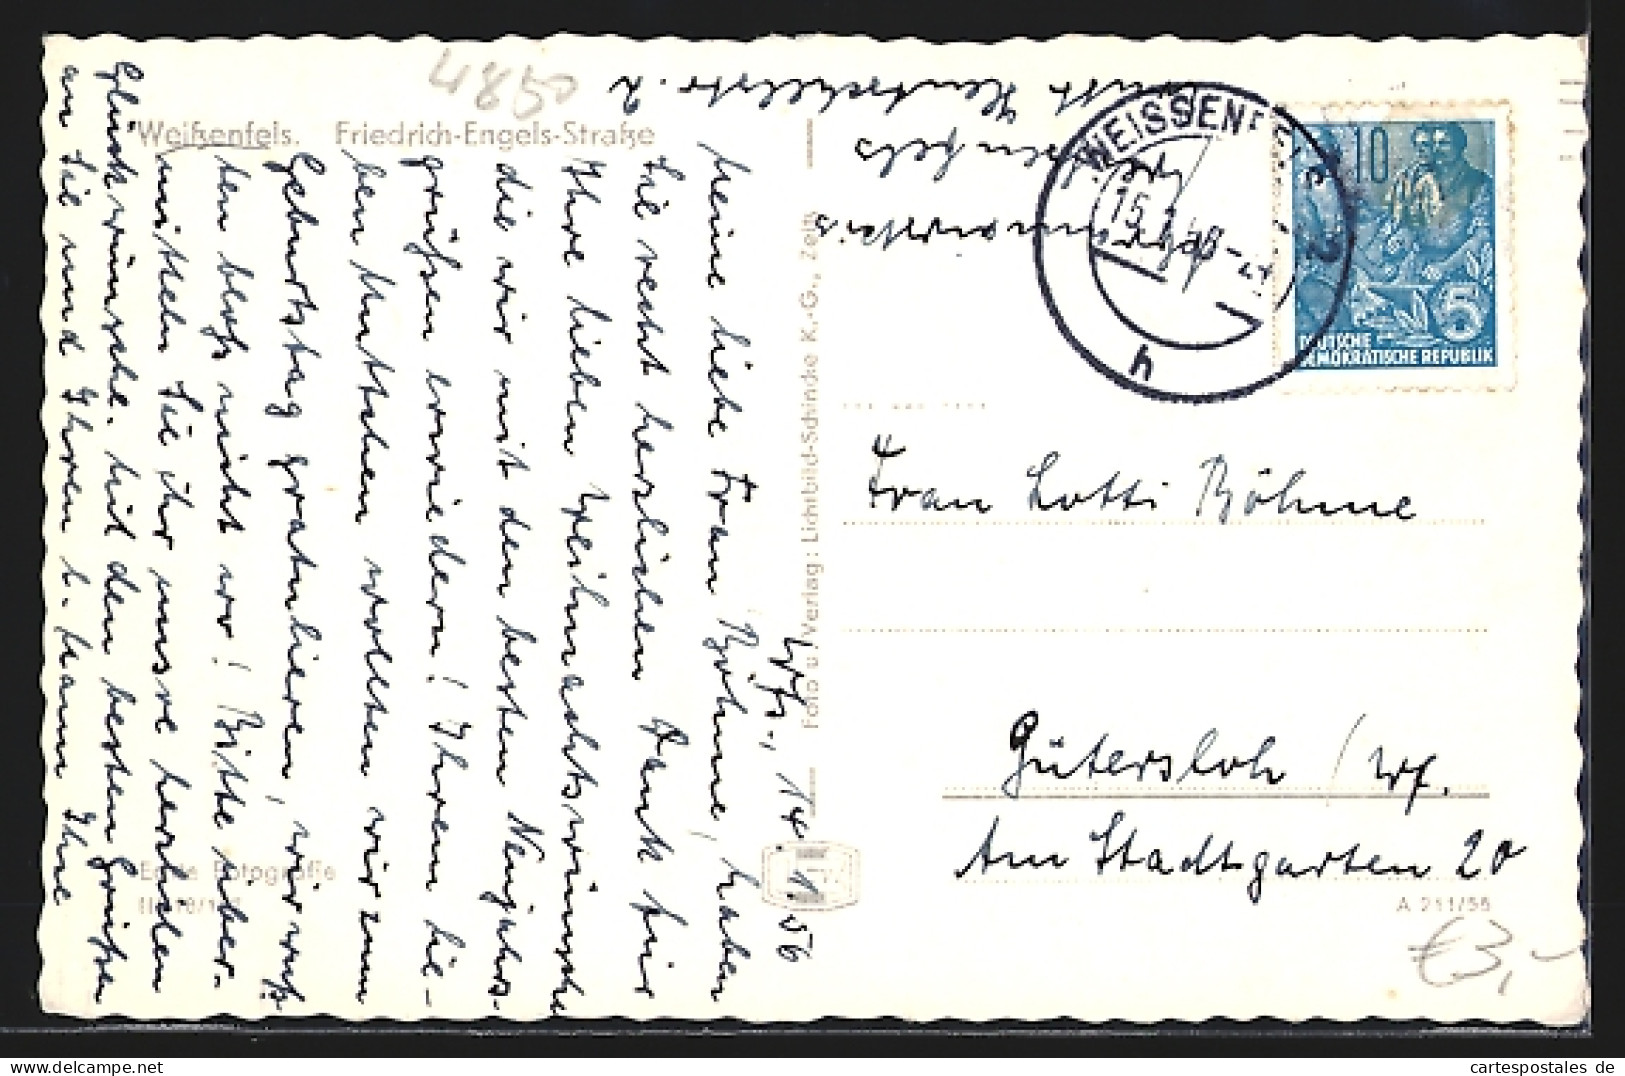 4850
Weißenfels. Friedrich-Engels-Straße
Wfs., 14.1.56
Meine liebe Frau Böhme, haben
Sie recht herzlichen Dank für
Ihre lieben Weihnachtswünsche
die wir mit den besten Neujahrs-
grüßen erwiedern! Ihrem lie-
ben Muttchen wollten wir zum
Geburtstag gratulieren, wir wuß-
ten bloß nicht wo! Bitte über-
mitteln Sie ihr unsre herzlichen
Glückwünsche. Mit den besten Grüßen
an Sie und Ihren l. Mann Ihre
Weißenfels
str. 2
Foto u. Verlag: Lichtbild-Schincke K.-G., Zeitz
Echte Fotografie
WEISSENFELS
15.
h
10
5
DEUTSCHE
DEMOKRATISCHE REPUBLIK
Frau Lotti Böhme
Gütersloh / Wf.
Am Stadtgarten 20
A 211/55
€3,-
cartespostales de